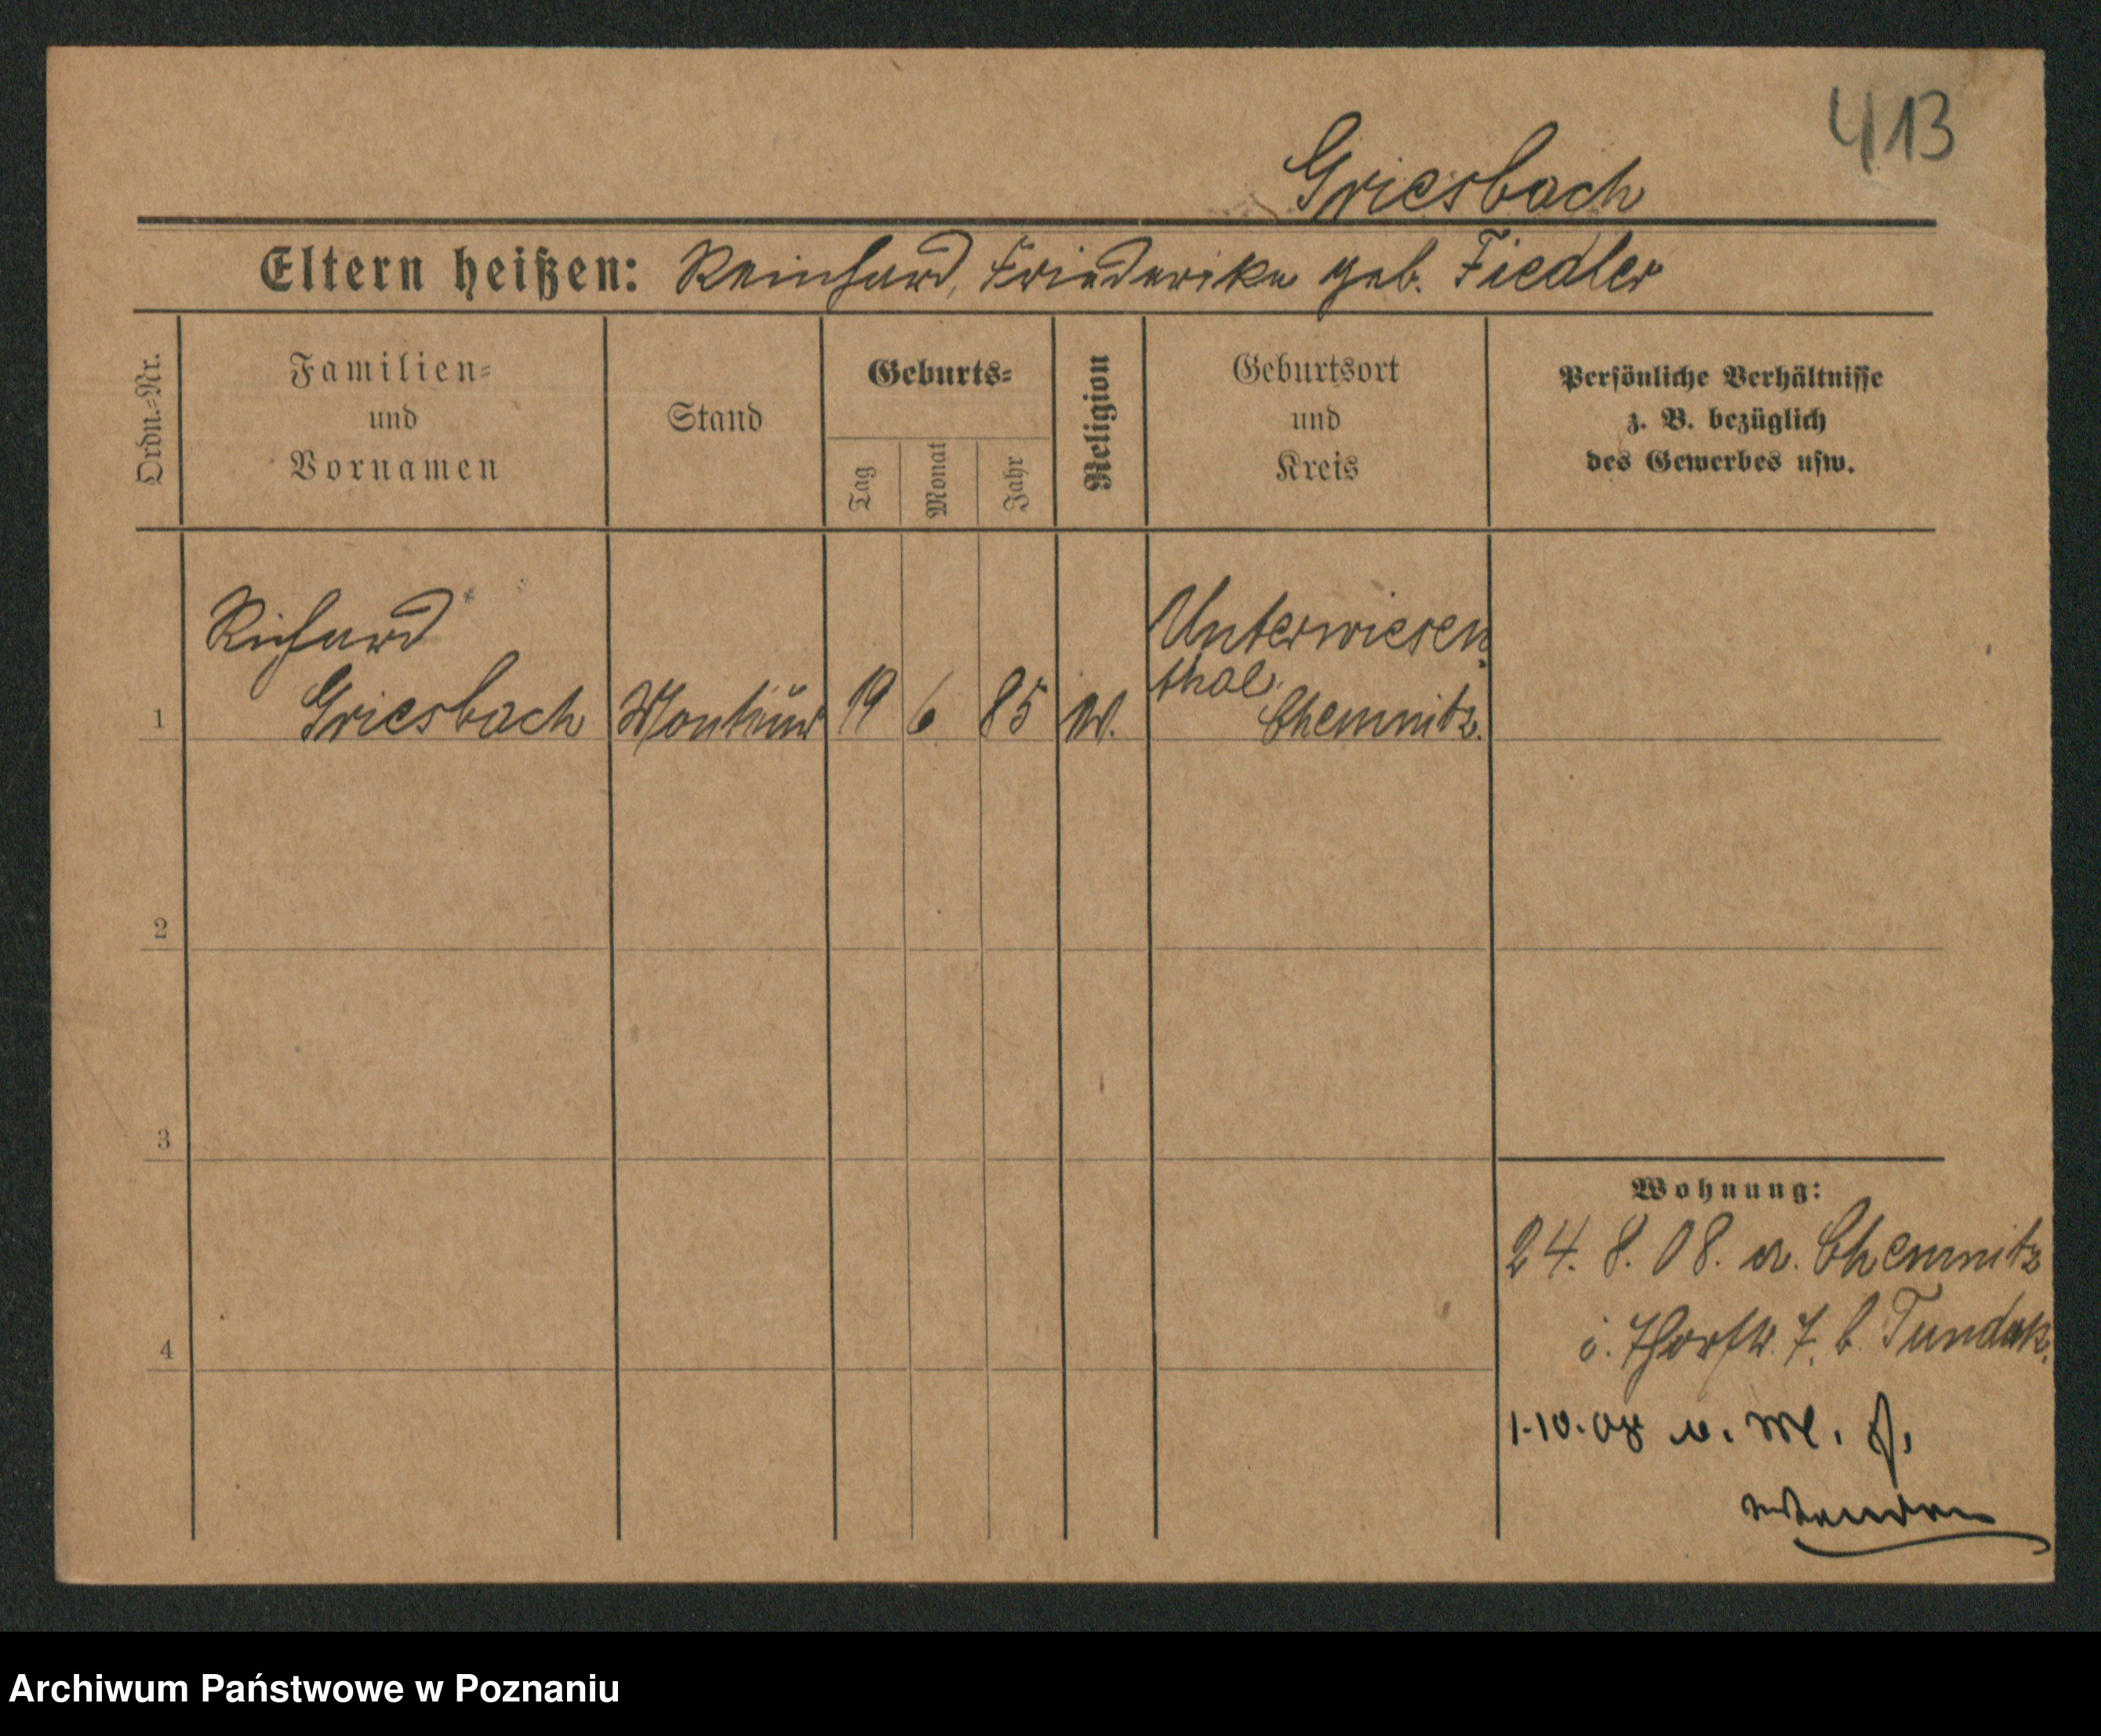 413
Griesbach
Eltern heißen: Reinhard, Friederike geb. Fiedler
Ordn.-Nr.
Familien-
und
Vornamen
Stand
Geburts-
Tag
Monat
Jahr
Religion
Geburtsort
und
Kreis
Persönliche Verhältnisse
z. B. bezüglich
des Gewerbes usw.
Richard
Griesbach
Monteur
19
6
85
Unterwiesen
thal
Chemnitz.
1
2
3
4
Wohnung:
24. 8. 08. a. Chemnitz
i. 7. b.
1.10.08
Archiwum Państwowe w Poznaniu